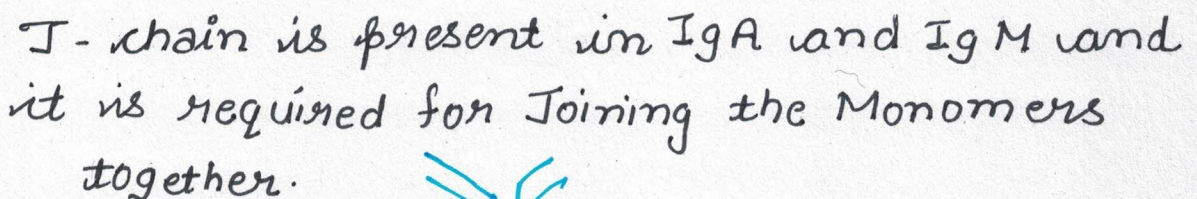 J- chain is present in IgA and IgM and
it is required for Joining the Monomers
together.